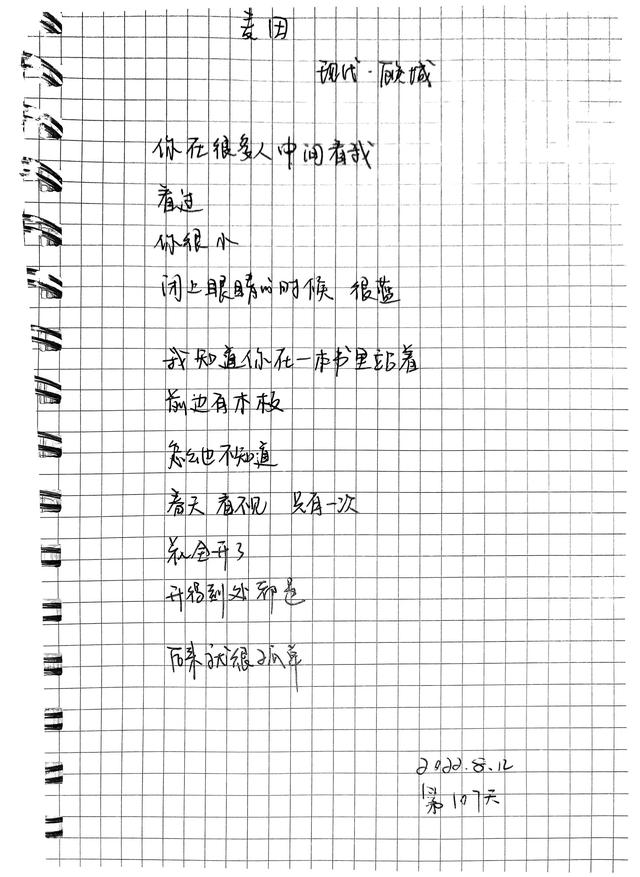 麦田
现代·顾城
你在很多人中间看我
看过
你很小
闭上眼睛的时候 很蓝
我知道你在一本书里站着
前边有木板
怎么也不知道
春天 看不见 只有一次
花全开了
开得到处都是
后来就很孤单
2022.8.12
第107天